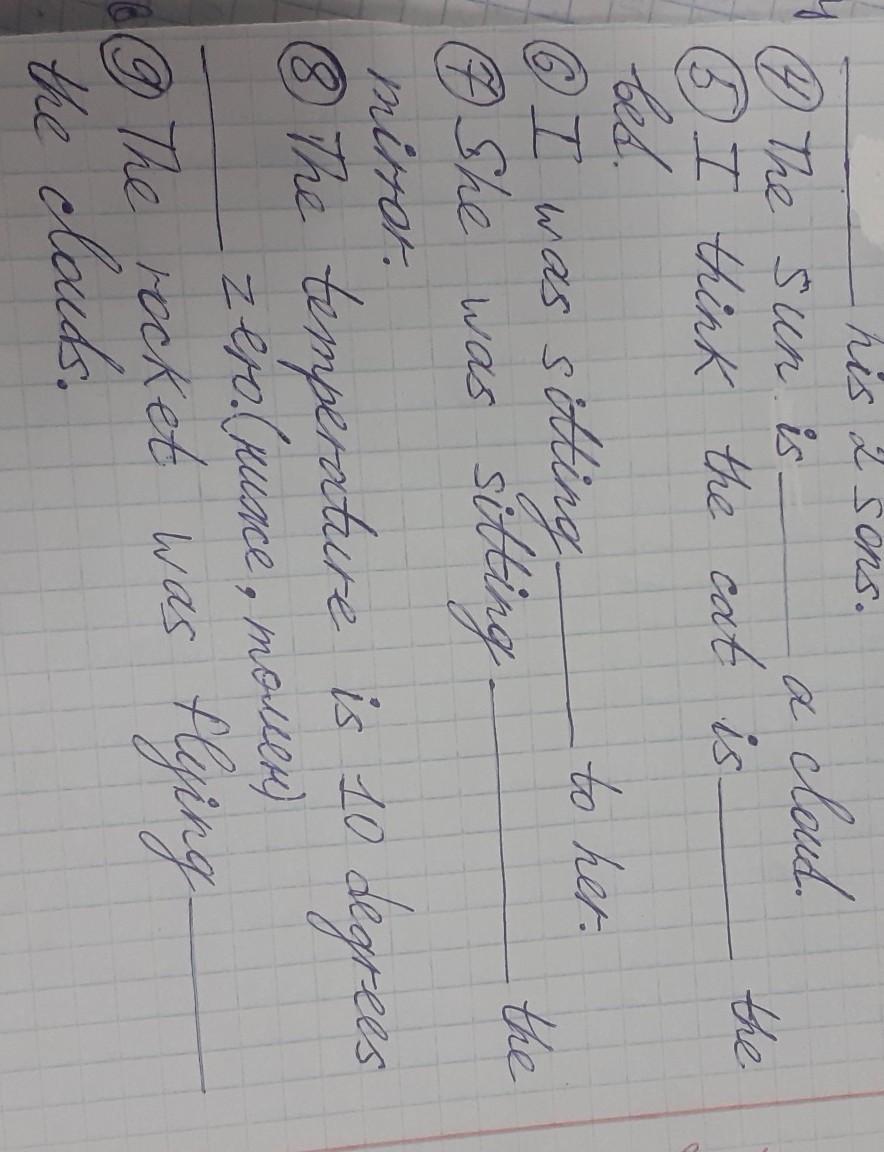 _______ his 2 sons.
④ The sun is _______ a cloud.
⑤ I think the cat is _______ the
bed.
⑥ I was sitting _______ to her.
⑦ She was sitting _______ the
mirror.
⑧ The temperature is 10 degrees
_______ zero. (ниже, тomen)
⑨ The rocket was flying _______
the clouds.